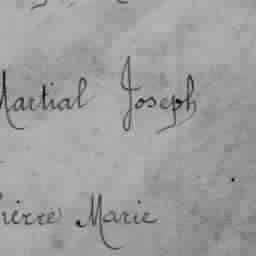 Martial Joseph
Pierre Marie